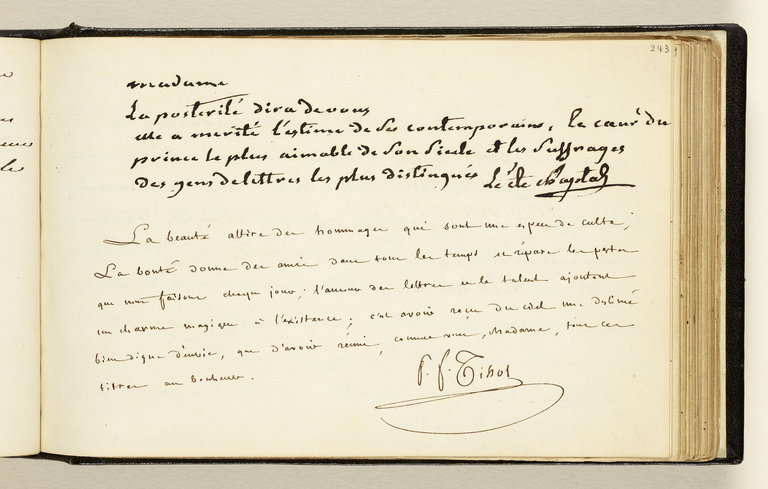 243
madame
La posterité dira de vous
elle a merité l'estime de Ses contemporains, le cœur du
prince le plus aimable de Son Siecle et les Suffrages
des gens de lettres les plus distingués Le cte chaptal
La beauté attire des hommages qui sont une espece de culte;
La bonté donne des amis dans tous les temps et répare les pertes
que nous faisons chaque jour; l'amour des lettres et le talent ajoutent
un charme magique à l'existence; c'est avoir reçu du ciel une destinée
bien digne d'envie, que d'avoir réuni, comme vous, Madame, tous ces
titres au bonheur.
P. F. Tissot